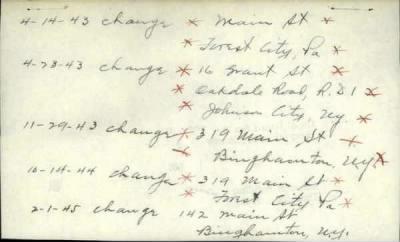 4-14-43 change * Main St *
* Forest City, Pa *
4-23-43 change * 16 Grant St *
* Oakdale Road, R.D 1 *
* Johnson City, N.Y. *
11-29-43 change * 319 Main St *
* Binghamton, N.Y. *
10-14-44 change * 319 Main St *
* Forest City Pa *
2-1-45 change 142 Main St
Binghamton, N.Y.